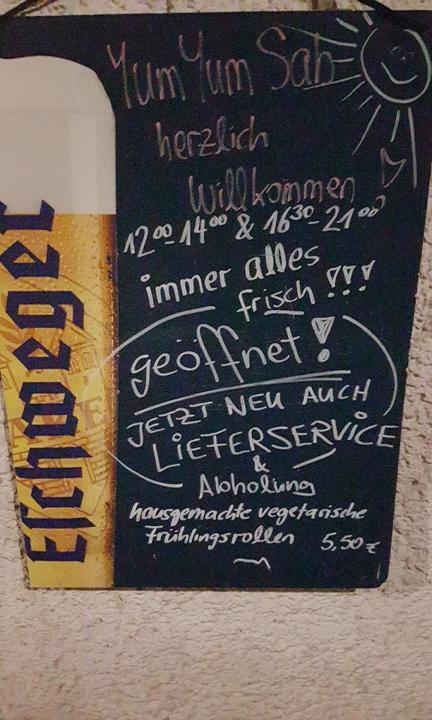 Eschweger
Yum Yum Sab
herzlich
Willkommen
12⁰⁰-14⁰⁰ & 16³⁰-21⁰⁰
immer alles
frisch !!!
geöffnet !
JETZT NEU AUCH
LIEFERSERVICE
&
Abholung
hausgemachte vegetarische
Frühlingsrollen 5,50€